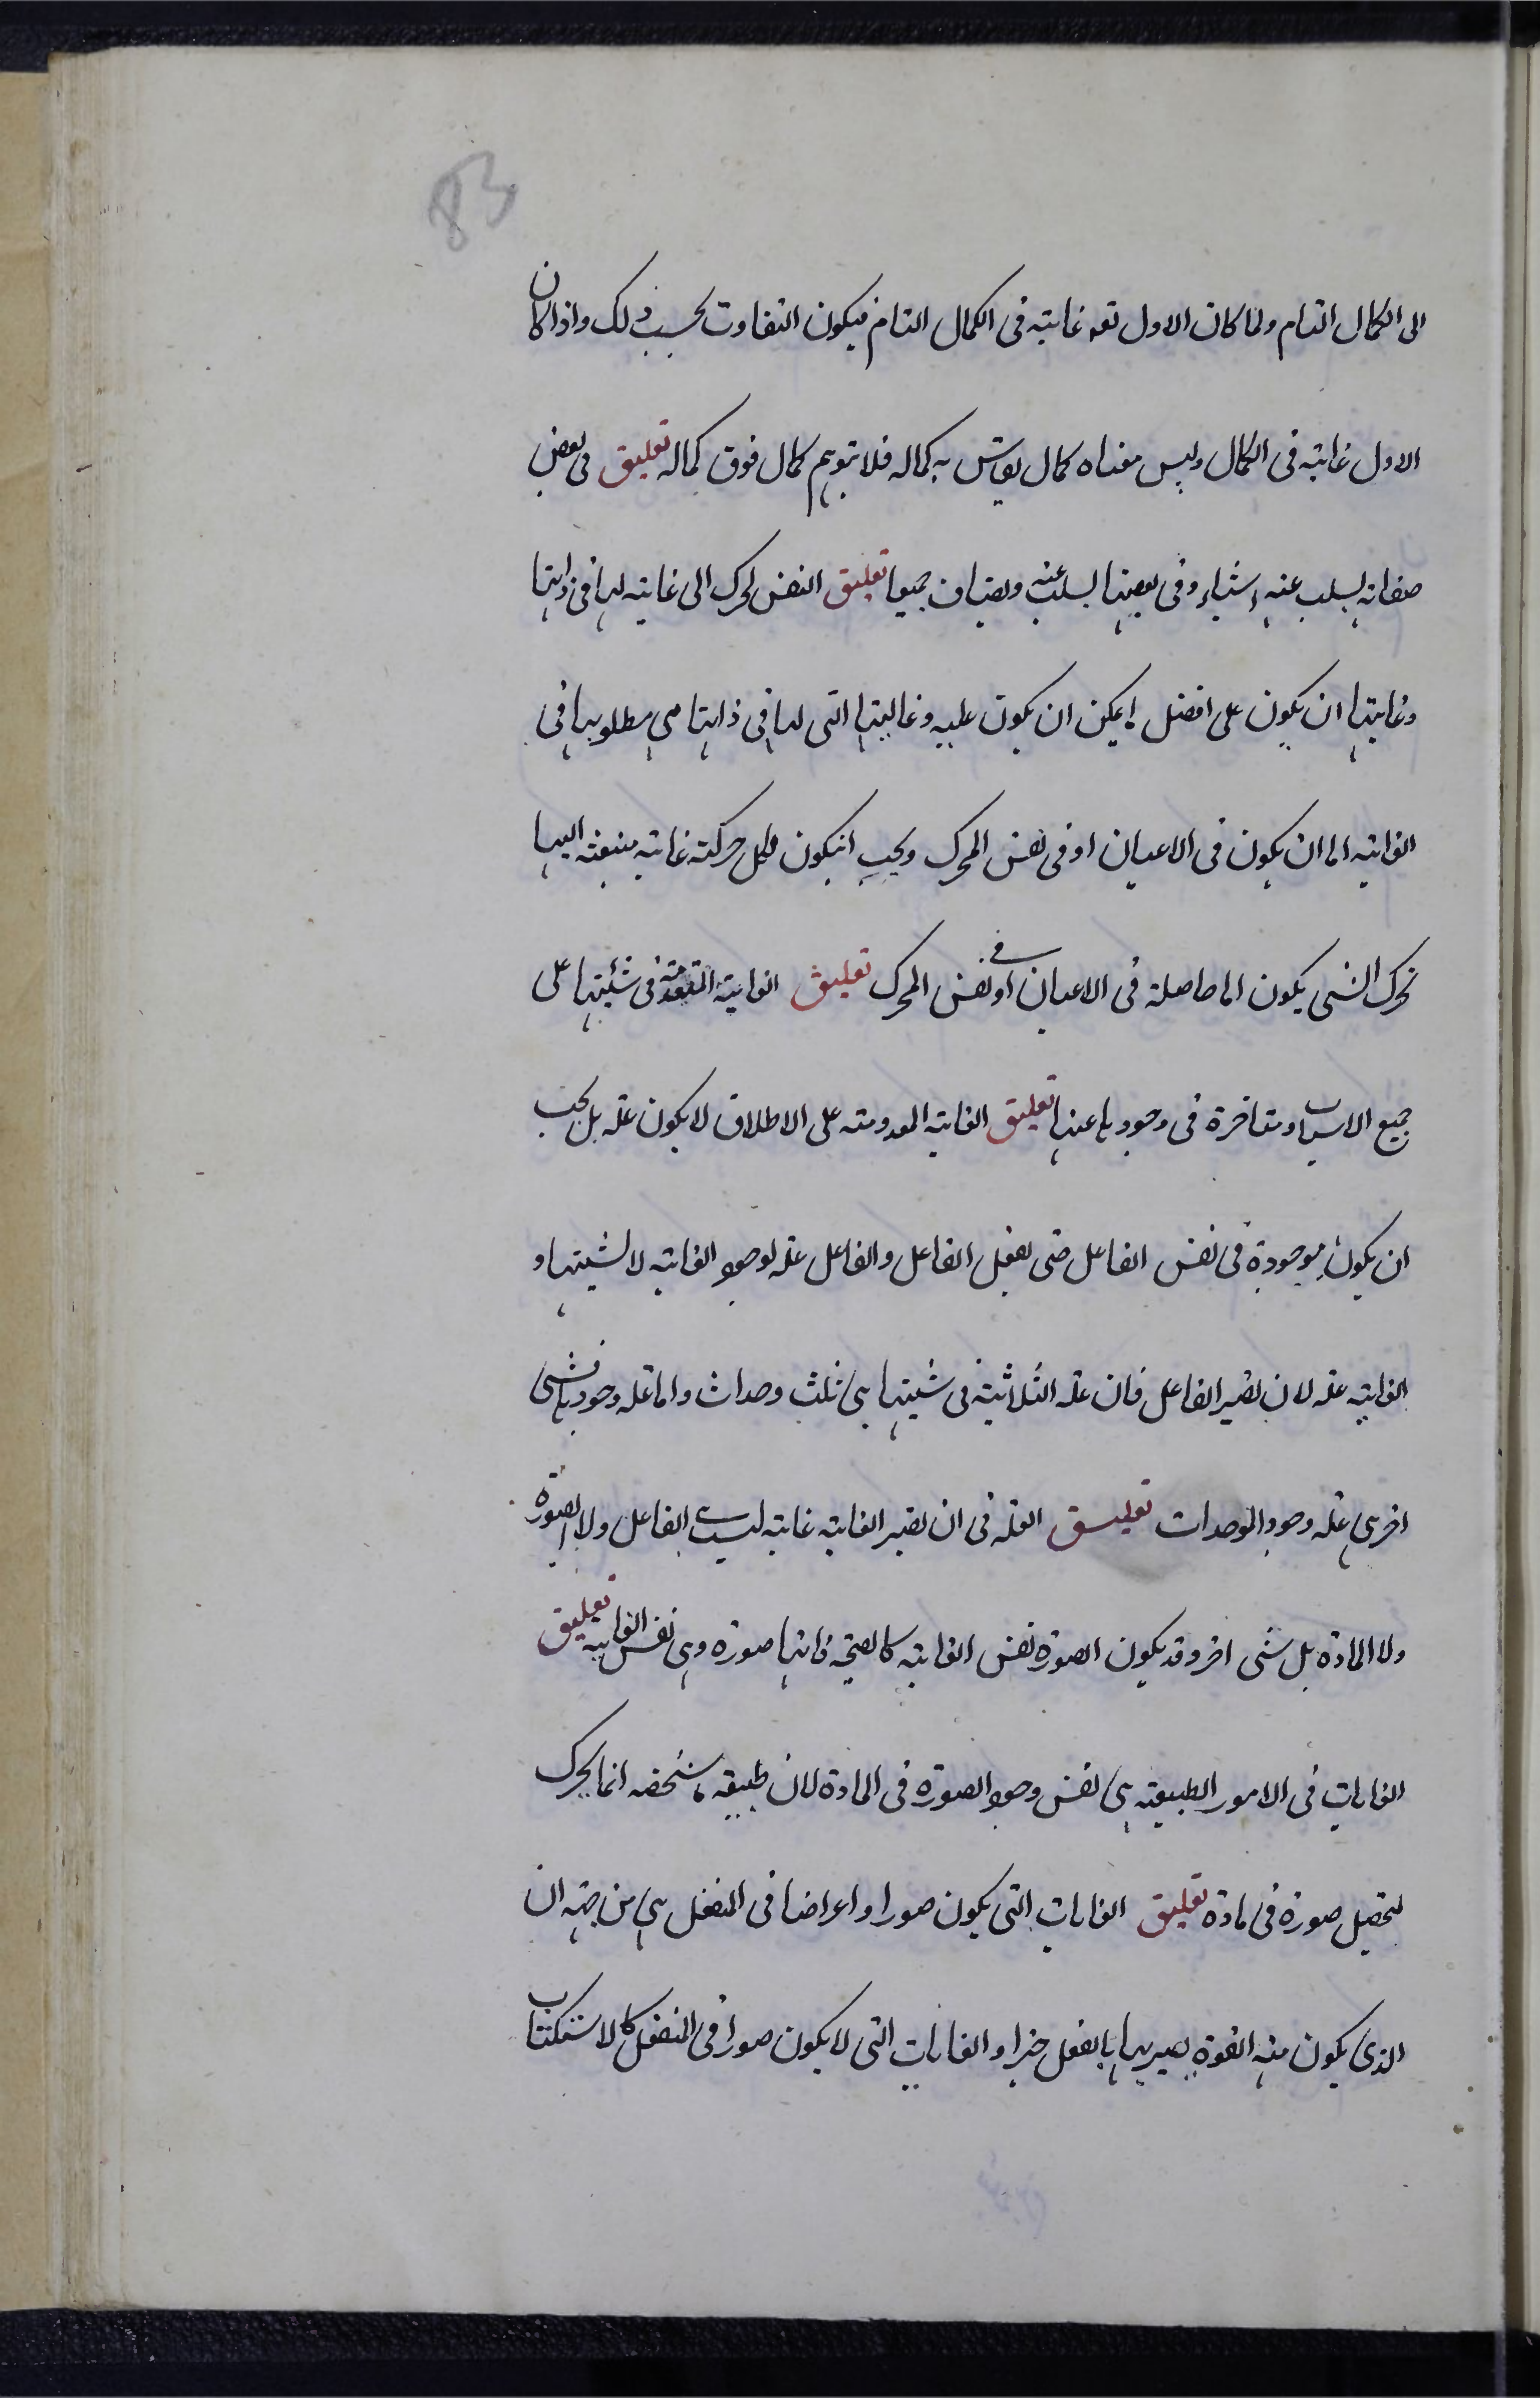 83
الى الكمال التام ولما كان الاول تعه غايته فى الكمال التام فيكون التفاوت بحسب ذلك واذا كان
الاول غايته فى الكمال وليس معناه كمال يقاس به كماله فلا يتوهم كمال فوق كماله تعليق فى بعض
صفاته يسلب عنه اشياء وفى بعضها يسلب عنه ويضاف جميعا تعليق النفس تحرك الى غاية لها فى ذاتها
وغايتها ان يكون على افضل ما يمكن ان يكون عليه وغايتها التى لها فى ذاتها هى مطلوبها فى
الغايته اما ان يكون فى الاعيان او فى نفس المحرك ويجب انيكون لكل حركته غايته منبعثه اليها
تحرك الشى يكون اما حاصلة فى الاعيان او فى نفس المحرك تعليق الغايته المتقدمة فى شيئيتها على
جميع الاسباب ومتاخرة فى وجودها عنها تعليق الغايته المعدومته على الاطلاق لا يكون عله بل يجب
ان يكون موجودة فى نفس الفاعل حتى يفعل الفاعل والفاعل عله لوجود الغايته لا لشيئيتها و
الغايته عله لان يصير الفاعل فان عله الثلاثية فى شيئيتها هى ثلث وحدات واما عله وجودها فشى
اخر هى عله وجود الوحدات تعليق العله فى ان يصير الغايه غايته ليست الفاعل ولا الصورة
ولا المادة بل شى اخر وقد يكون الصورة نفس الغايته كالصحه فانها صورة وهى نفس الغايته تعليق
الغايات فى الامور الطبيعته هى نفس وجود الصورة فى المادة لان طبيعه ما شخصه انما يحرك
لتحصيل صورة فى مادة تعليق الغايات التى يكون صورا و اعراضا فى المنفعل هى من جهه ان
الذى يكون منه القوة يصير بها بالفعل خيرا و الغايات التى لا يكون صورا فى المنفعل كالاستكتاب